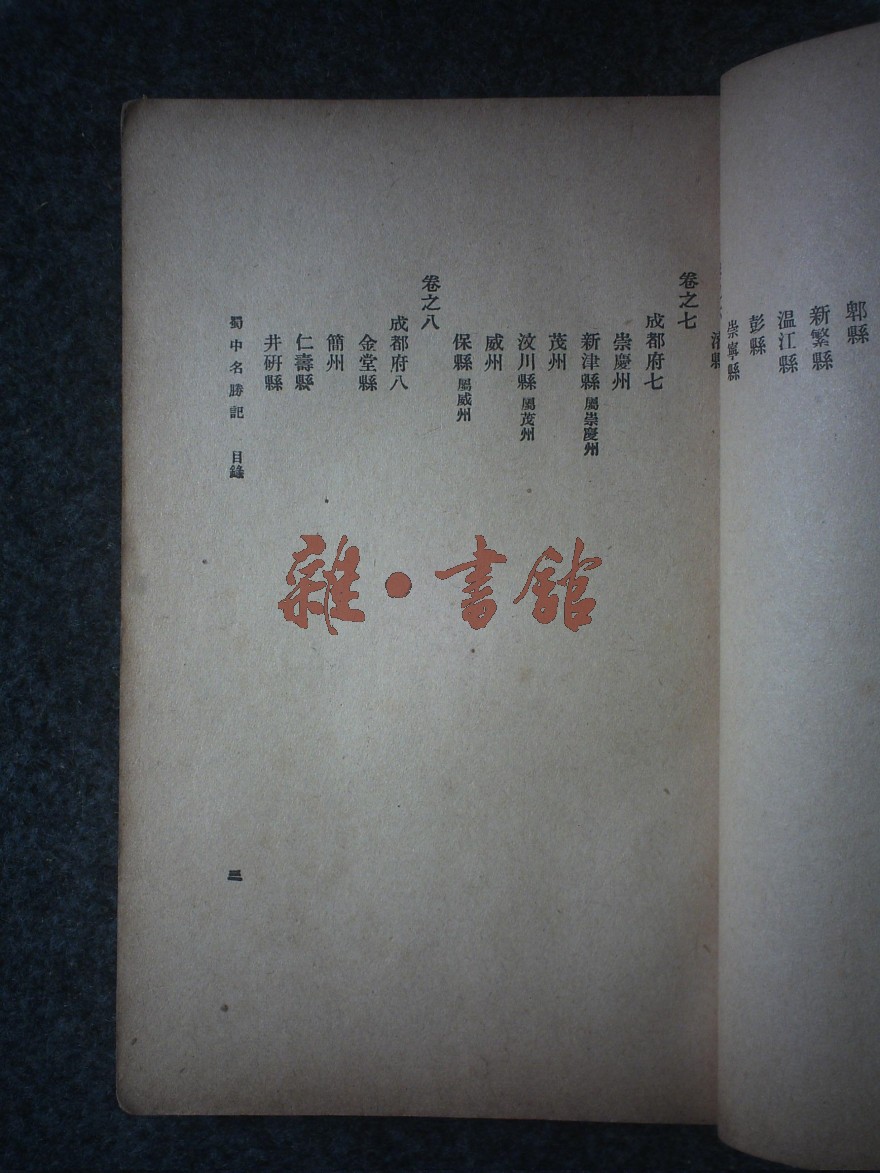 郫縣
新繁縣
温江縣
彭縣
崇寧縣
卷之七
成都府七
崇慶州
新津縣 屬崇慶州
茂州
汶川縣 屬茂州
威州
保縣 屬威州
卷之八
成都府八
金堂縣
簡州
仁壽縣
井研縣
蜀中名勝記 目錄
三
雜·書館